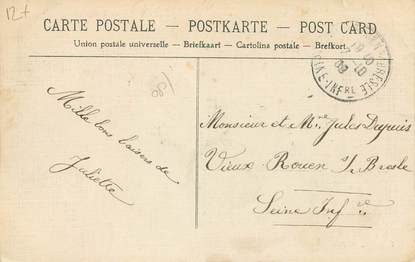 12+
CARTE POSTALE – POSTKARTE – POST CARD
Union postale universelle – Briefkaart – Cartolina postale – Brefkort
Mille bons baisers de
Juliette
Monsieur et Mme Jules Dupuis
Vieux-Rouen s/ Bresle
Seine Infre